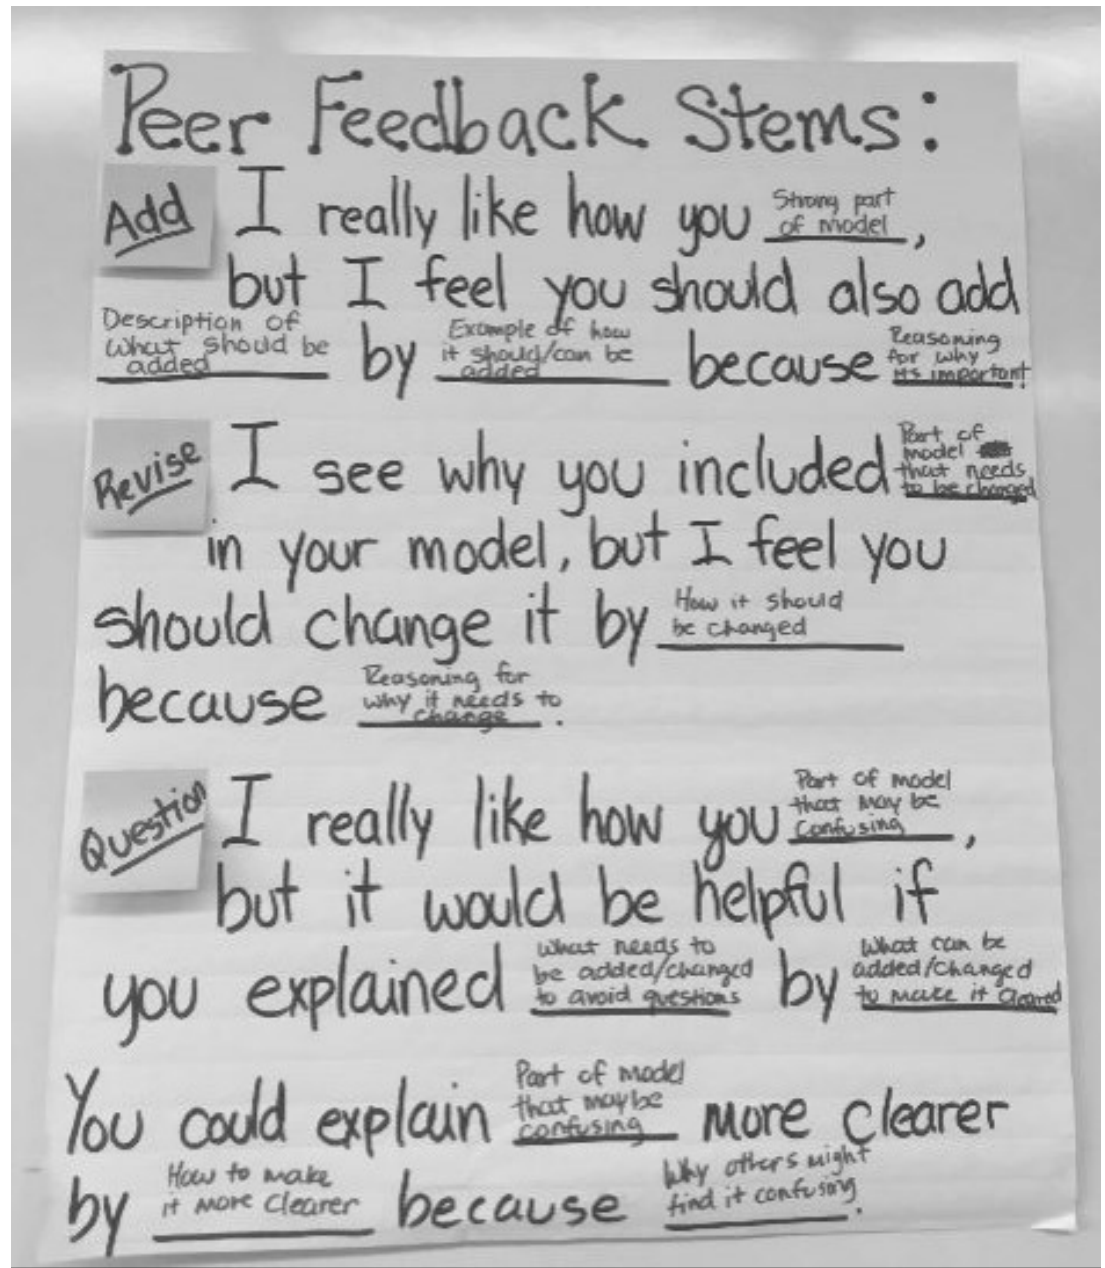 Peer Feedback Stems:
Add I really like how you Strong part of model,
but I feel you should also add
Description of what should be added by Example of how it should/can be added because Reasoning for why its important.
Revise I see why you included Part of model that needs to be changed
in your model, but I feel you
should change it by How it should be changed
because Reasoning for why it needs to change.
Question I really like how you Part of model that may be confusing,
but it would be helpful if
you explained what needs to be added/changed to avoid questions by what can be added/changed to make it cleared
You could explain Part of model that maybe confusing more clearer
by How to make it more clearer because Why others might find it confusing.